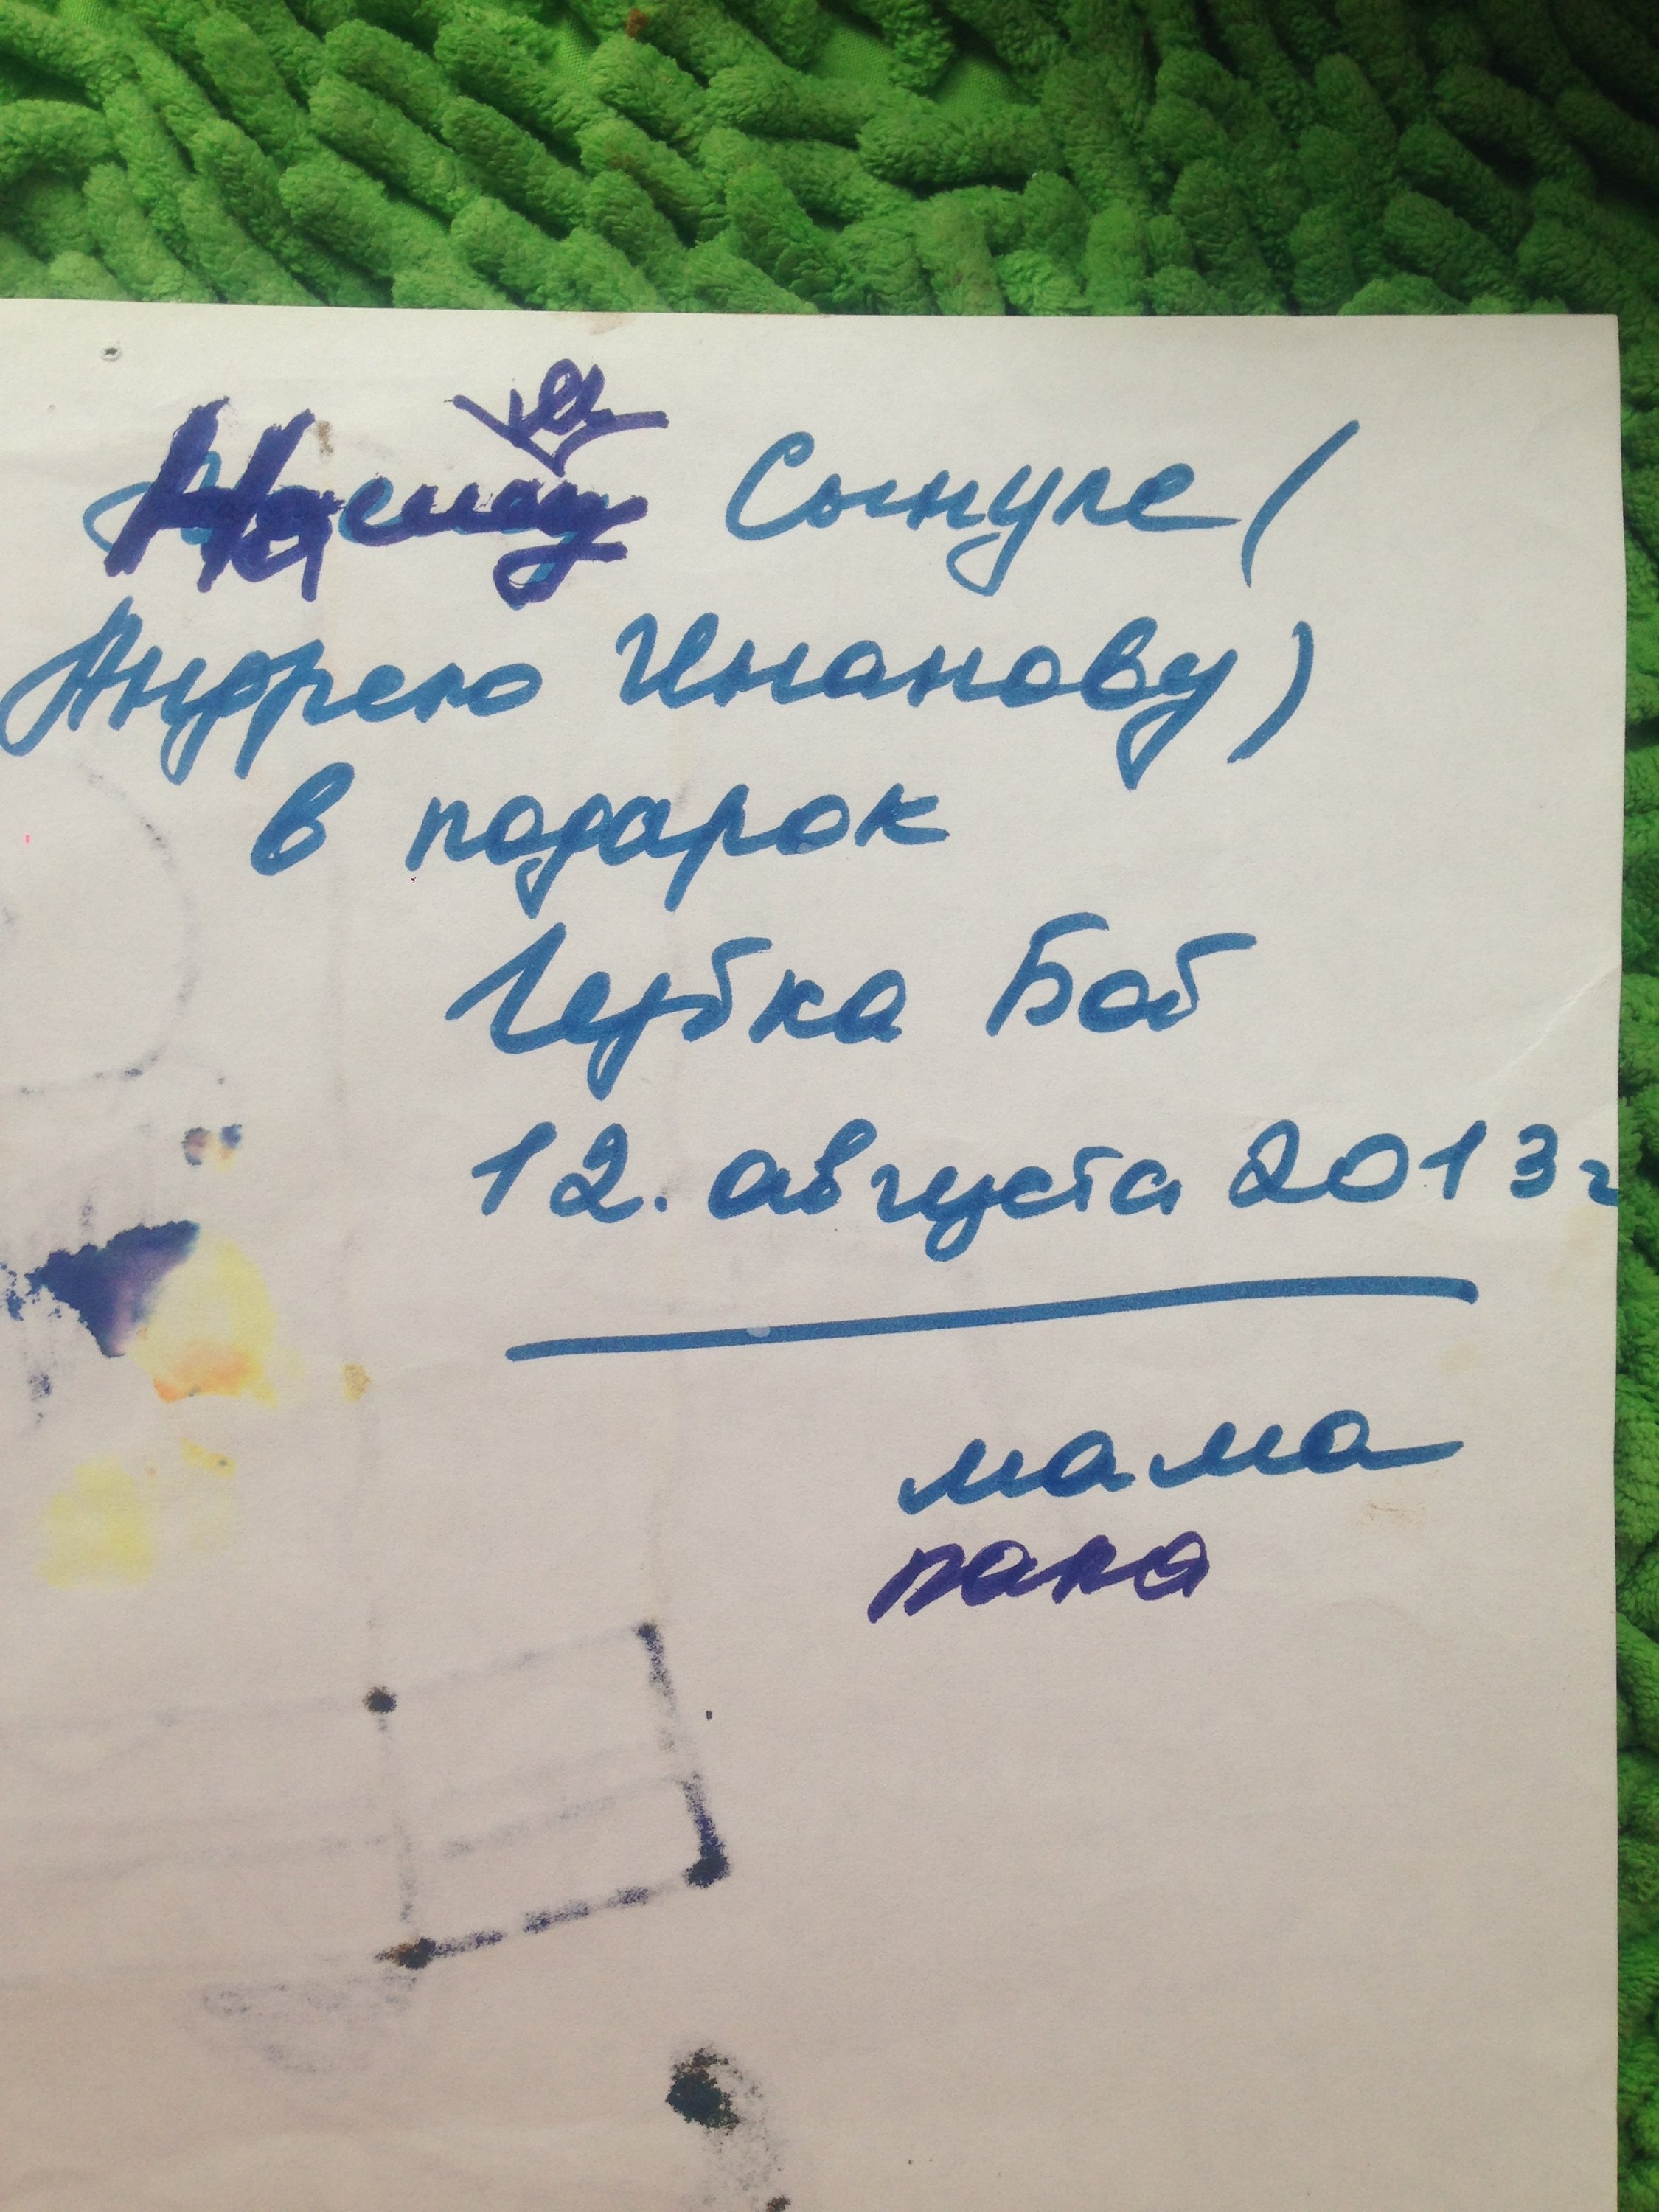 Нашему Сынуле (
Андрею Инанову)
в подарок
Губка Боб
12. августа 2013г
мама
папа